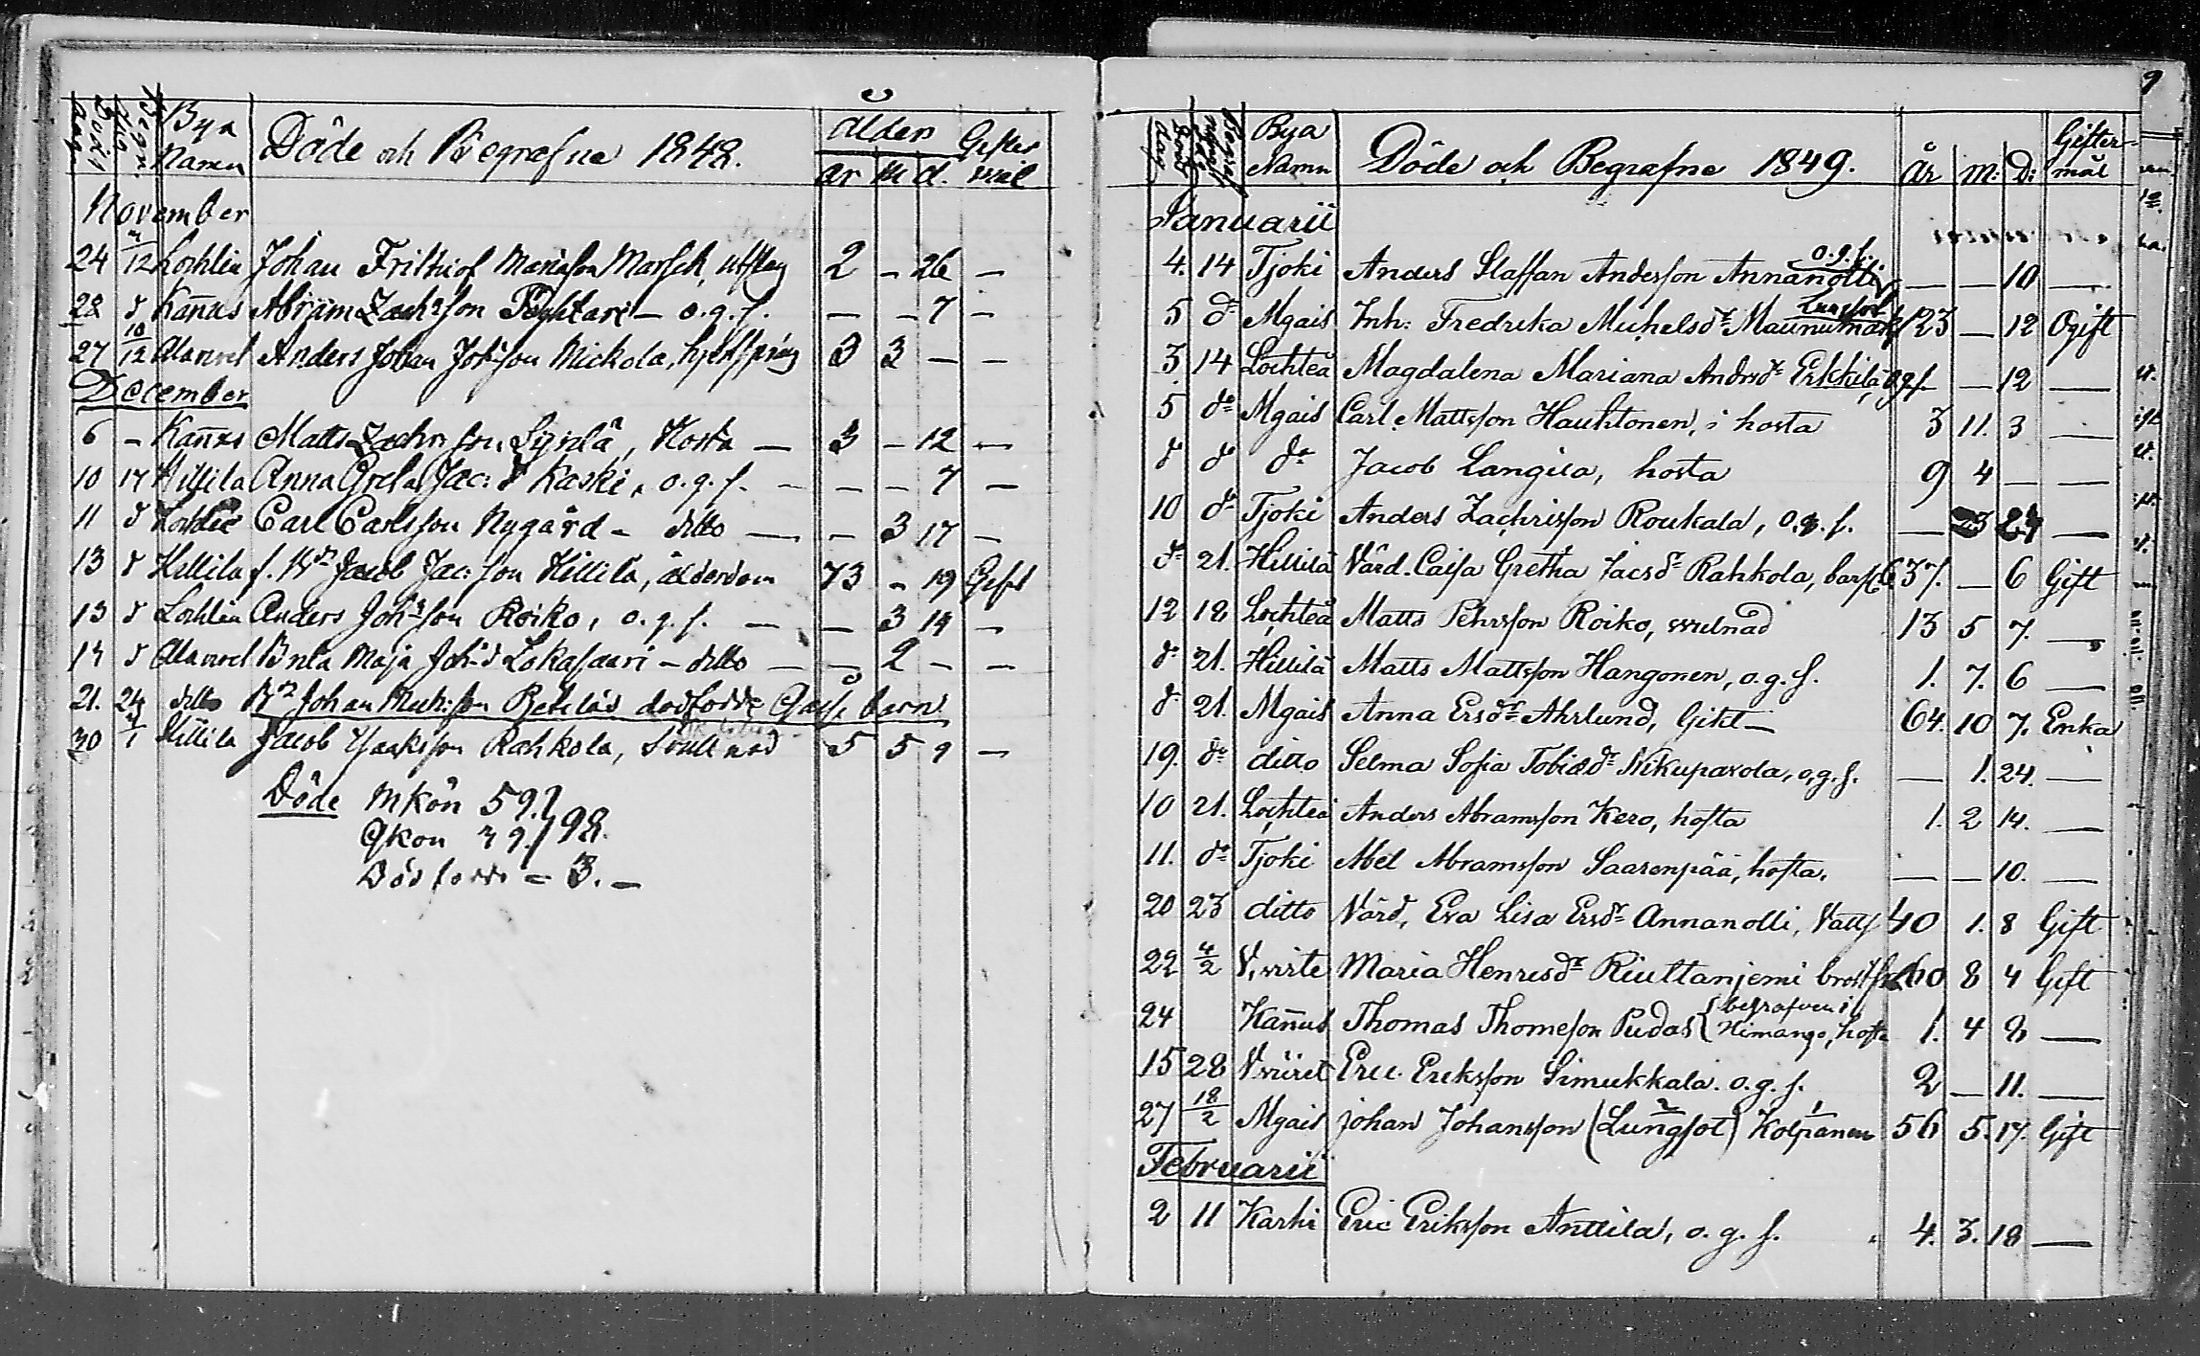 Död dag
Begr: dag
Bya Namn
Döde och Begrafne 1848.
Ålder
år m d.
Gifter mål
November
24 3/12 Lochtea Johan Frithiof Mariason Marsch, utslag 2 – 26 –
28 d Kan̄us Abram Zachrsson – o.g.s. – – 7 –
27 10/12 Alaveel Anders Johan Johsson Mickola, 3 3 – –
December
6 – Kan̄us Matts Zachrsson Hosta – 3 – 12 –
10 17 Hillila Anna Greta Jac: d Kaski, o.g.s. – – – 7 –
11 d Carl Carlsson Nygård – ditto – – 3 17 –
13 d Hillila f. Bn Jacob Jac:son Hillila, ålderdom 73 – 19 Gift
13 d Lochtea Anders Johsson Roiko, o.g.s. – – 3 14 –
14 d Alaveel Brita Maja Joh:d – ditto – – 2 – –
21. 24 ditto Bn Johan Mich:son dödfödde barn
30 4/1 Hillila Jacob Rahkola, 5 5 9 –
Döde Mkön 59. } 98.
Qkön 39.
Dödfödde – 3. –
9
Död dag
Begraf
Bya Namn
Döde och Begrafne 1849.
År M: D:
Giftermål
Januarii
4. 14 Tjoki Anders Staffan Andersson Annanolli o.g.s. – – 10 –
5 do Mgais Inh: Fredrika Michelsdr Maunumäki Lungsot 23 – 12 Ogift
3 14 Lochteå Magdalena Mariana Andrsdr Erkkilä, ogs – 12 –
5 do Mgais Carl Mattsson Hauhtonen, i hosta 3 11. 3 –
d do do Jacob Langila, hosta 9 4 – –
10 do Tjoki Anders Zachrisson Roukala, o.g.s. – 3 24 –
do 21. Hillilä Värd. Caisa Gretha Jacsdr Rahkola, bars 37. – 6 Gift
12 18 Lochteå Matts Pehrsson Roiko, svulnad 13 5 7. –
do 21. Hillilä Matts Mattsson Hangonen, o.g.s. 1. 7. 6 –
d 21. Mgais Anna Ersdr Ahrlund, Gikt – 64. 10 7. Enka
19. do ditto Selma Sofia Tobiædr Nikupavola, o.g.s. – 1. 24. –
10 21. Lochteå Anders Abramsson Kero, hosta 1. 2 14. –
11. do Tjoki Abel Abramsson Saarenpää, hosta. – – 10. –
20 23 ditto Värd, Eva Lisa Ersdr Annanolli, Vatts 40 1. 8 Gift
22 4/2 V,virte Maria Henrisdr Riuttanjemi 60 8 4 Gift
24 Kan̄us Thomas Thomeson Pudas { begrafven i Himango, hosta 1. 4 8 –
15 28 Vviirit Eric Eriksson Simukkala. o.g.s. 2 – 11. –
27 18/2 Mgais johan Johansson (Lungsot) Kolpanen 56 5. 17. Gift
Februarii
2 11 Karhi Eric Eriksson Anttila, o.g.s. 4. 3. 18 –